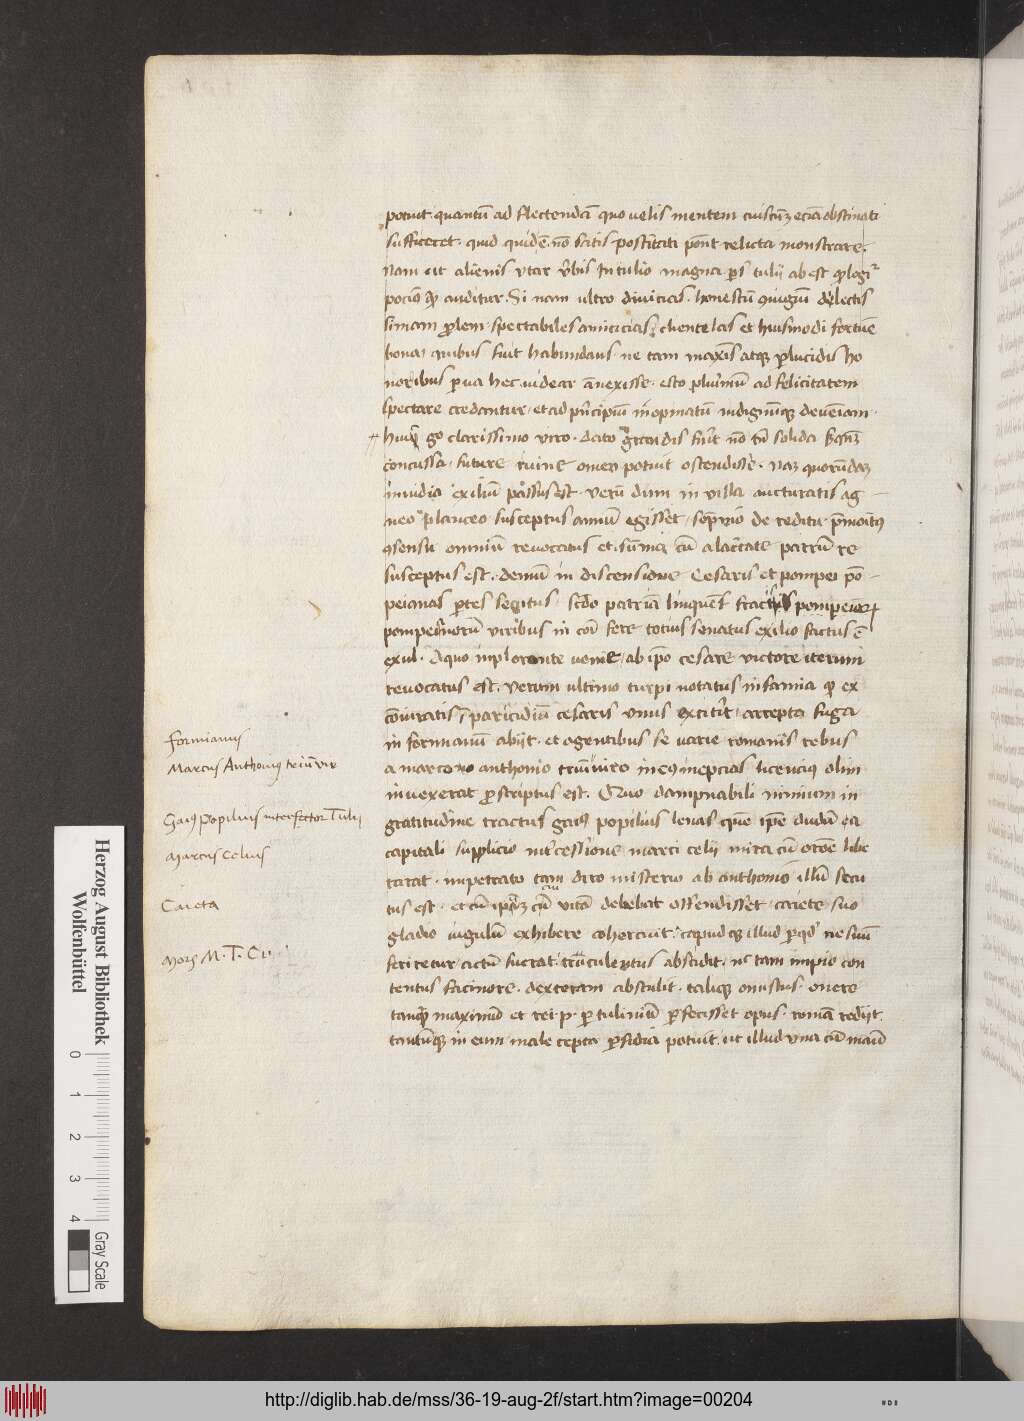 potuit quantū ad flectendā quo uelis mentem cuiusuis eciā obstinati
sufficeret. quid quidē nō satis postteritati pōnt relicta monstrare.
Nam ut alienis utar ūbis In tulio magna ps tulii abest qȝ legit
pocius qȝ auditur. Si nam ultro diuicias. honestū giugiū dylectis
simam plem. spectabiles amicicias, clientelas et huiusmodi fortune
bona, quibus fuit habundans. ne tam maxīs atqȝ plucidis ho
noribus pua hec uidear anexisse. esto plurimū ad felicitatem
spectare credantur, et ad pncipiū inopinatū indignūqȝ deueniam.
Huic gͦ clarissimo uiro. dato grandis fuit nō tn̄ solida
concussa, future ruine omen potuit ostendisse. Naȝ quorūdaȝ
inuidia exiliū passus est. verū dum in villa
neo planceo susceptus annū egisset, sōpnio de reditu pmonitus
gsensu omniū reuocatus et summa cū alacritate patrū re
susceptus est. demū in discensione Cesaris et pompei pō
peianas ptes segutus. scdo patriā linquens fractis pompeioꝝ
pompeianorū viribus in coī fere totius senatus exilio factus ē
exul. Aquo implorante uenie, ab ipo cesare victore iterum
reuocatus est. verum ultimo turpi notatus infamia qȝ ex
coniuratis in paricidiū cesaris unus extitit, accepta fuga
in formianū abijt. et agentibus se uarie romanis rebus
a marco anthonio triūuiro in eqȝ inepcias licencius olim
inuexerat pscriptus est. Quo dampnabili nimium in
gratitudine tractus gaius popilius lenas quē ipe dudū ea
capitali supplicio int̄cessione marci celii mira cū orōe libe
rarat. impetrato tam diro misterio ab anthonio illū secu
tus est. et cū ip̄m cui vitā debebat offendisset, caiete, suo
gladio iugulū exhibere cohercuit. capudqȝ illud
feriretur, actū fuerat truculentus abscidit. nc tam impio con
tentus facinore. dexteram abstulit. taliqȝ onustus onere
tanqȝ maximū et rei p. p tulinium pfecisset opus. romā redijt.
tantūqȝ in eum male cepta pfidia potuit. ut illud una cū manu
formianus
Marcus Anthonius triūvir
Gaiꝰ Popilius interfector Tulij
Marcus Celius
Caieta
Mors M. T. Ci
Herzog August Bibliothek
Wolfenbüttel
0 1 2 3 4
Gray Scale
http://diglib.hab.de/mss/36-19-aug-2f/start.htm?image=00204